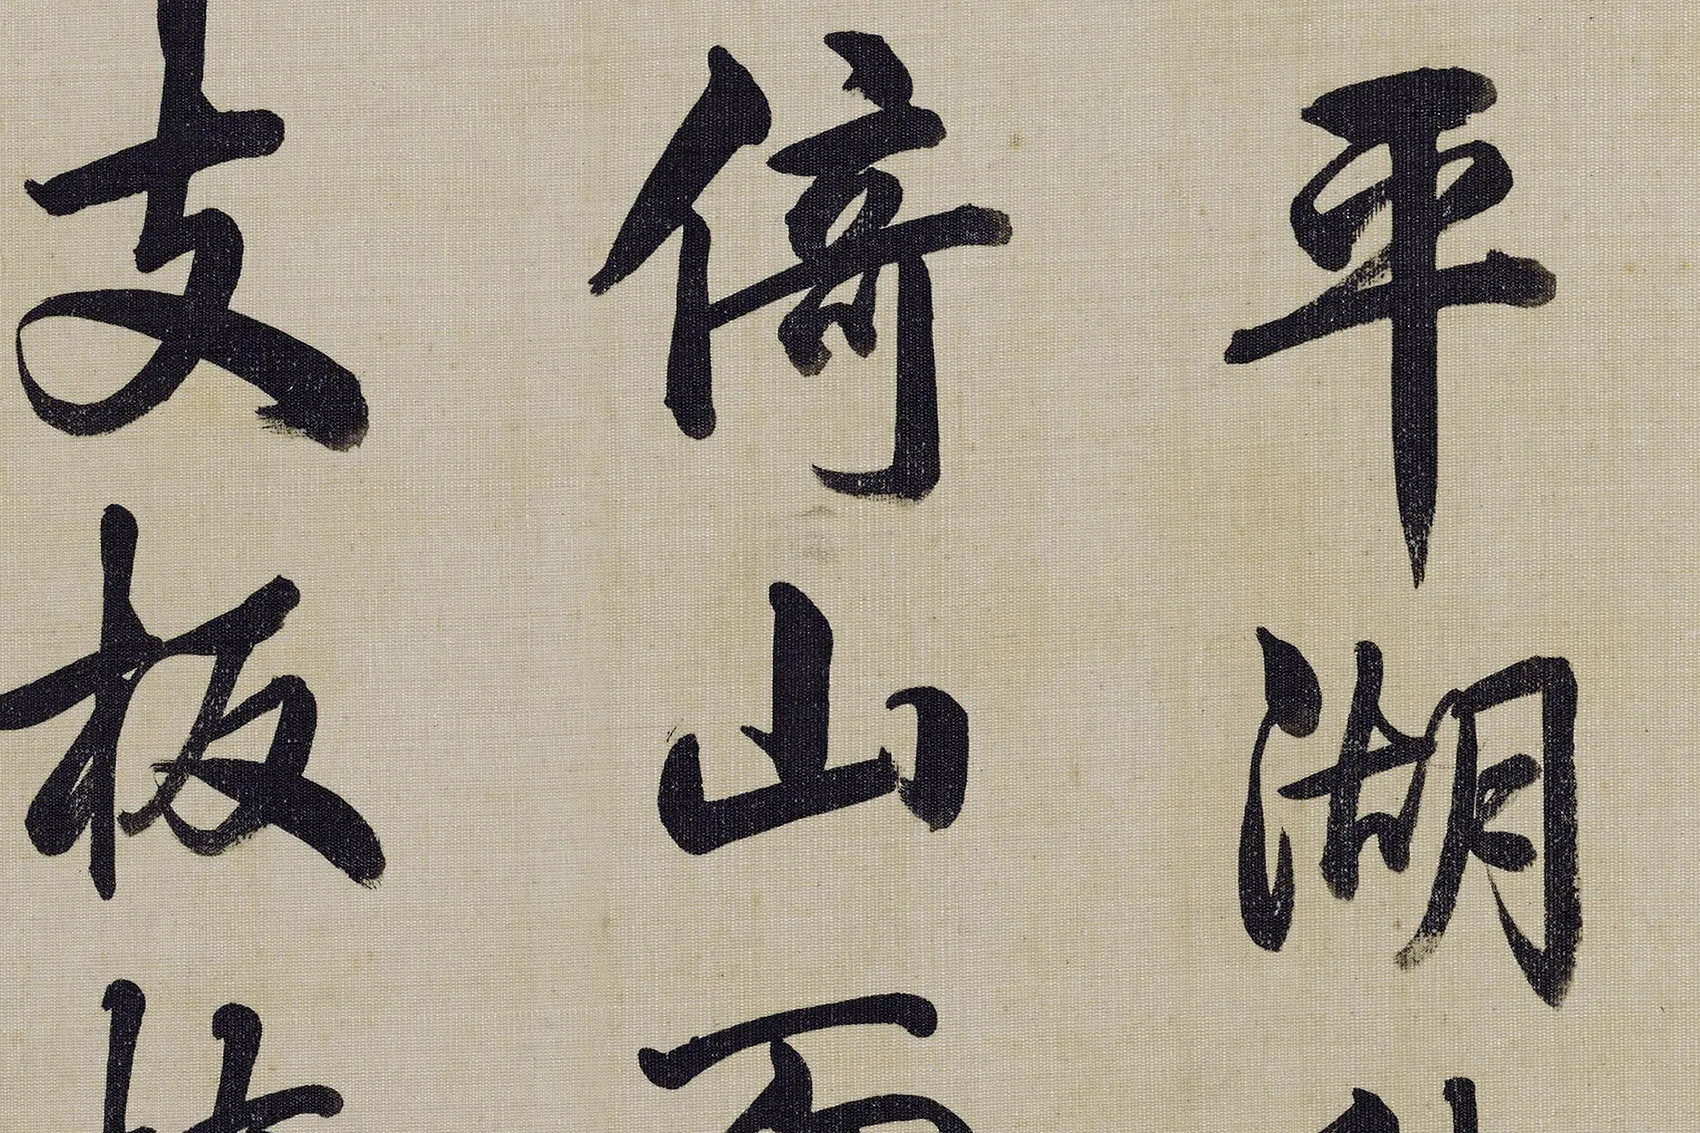 平湖
倚山
支板